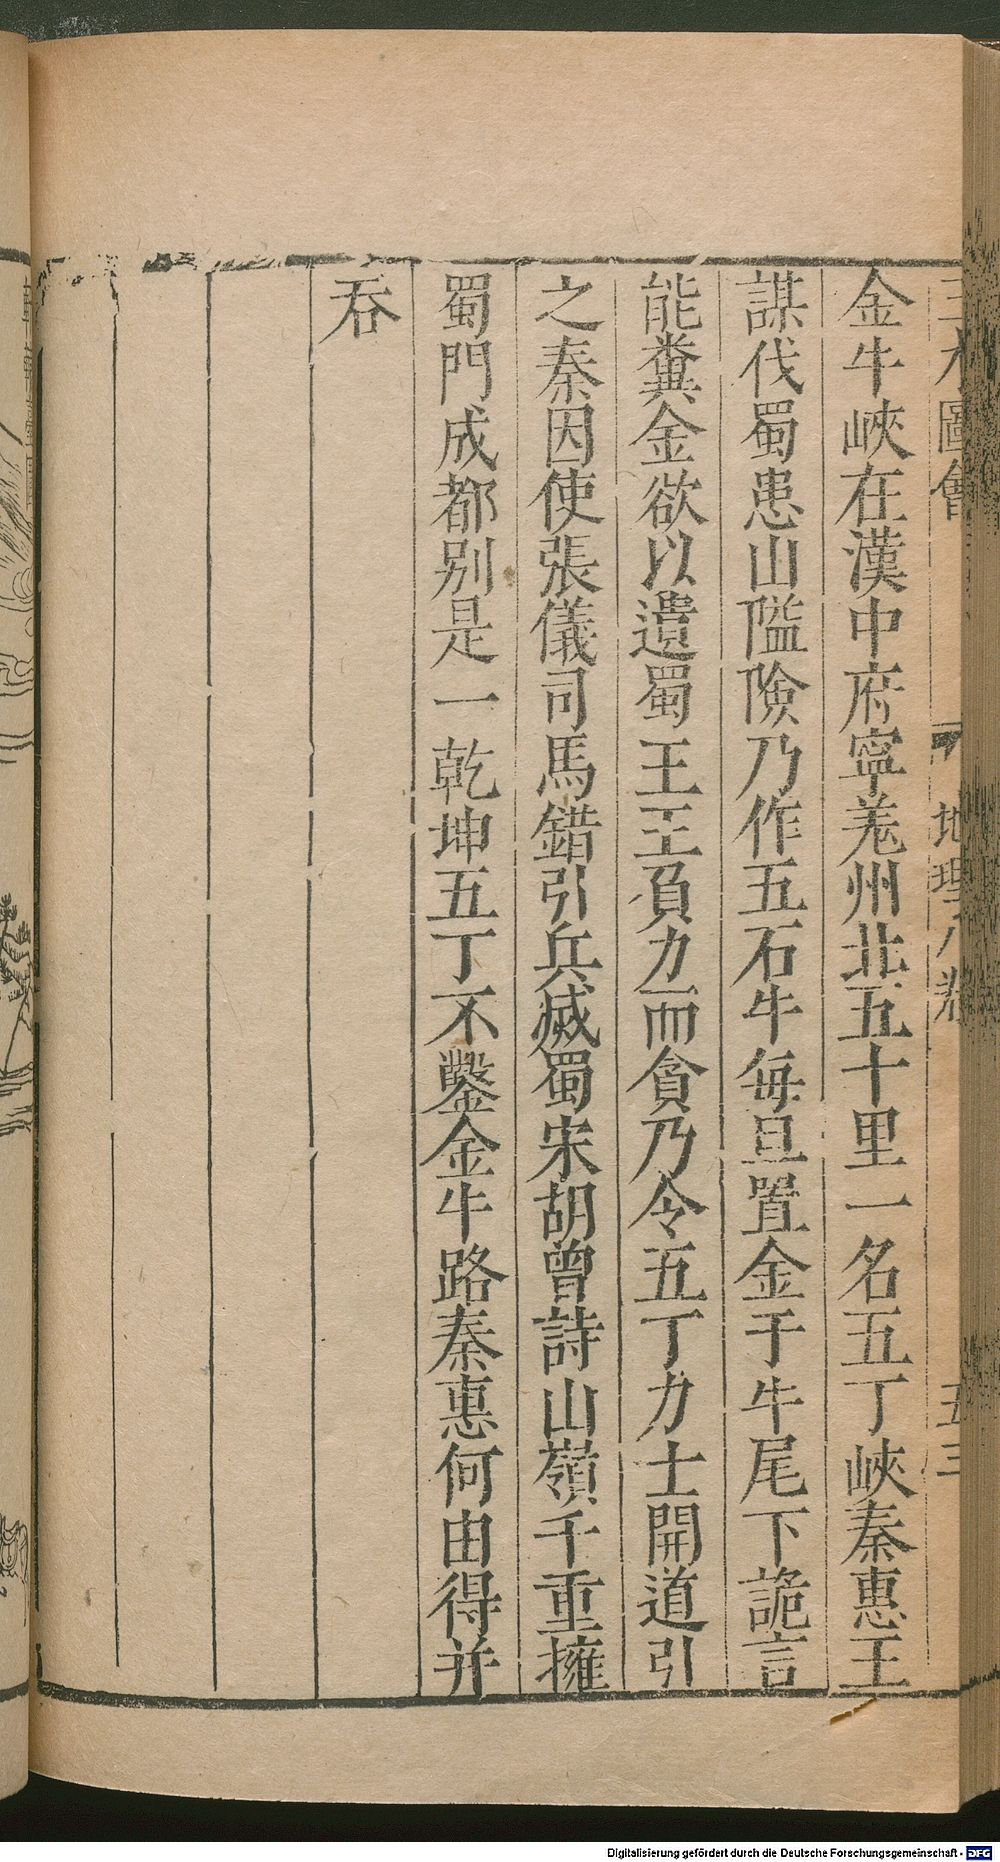 三才圖會 地理八卷 五三
金牛峽在漢中府寧羗州北五十里一名五丁峽秦惠王
謀伐蜀患山隘險乃作五石牛毎旦置金于牛尾下詭言
能糞金欲以遺蜀王王負力而貪乃令五丁力士開道引
之秦因使張儀司馬錯引兵滅蜀宋胡曾詩山嶺千重擁
蜀門成都别是一乾坤五丁不鑿金牛路秦惠何由得并
吞
Digitalisierung gefördert durch die Deutsche Forschungsgemeinschaft - DFG